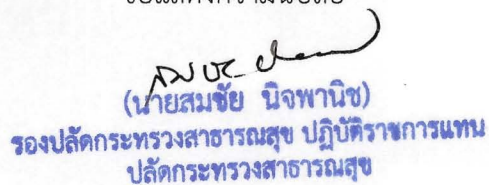 (นายสมชัย นิจพานิช)
รองปลัดกระทรวงสาธารณสุข ปฏิบัติราชการแทน
ปลัดกระทรวงสาธารณสุข